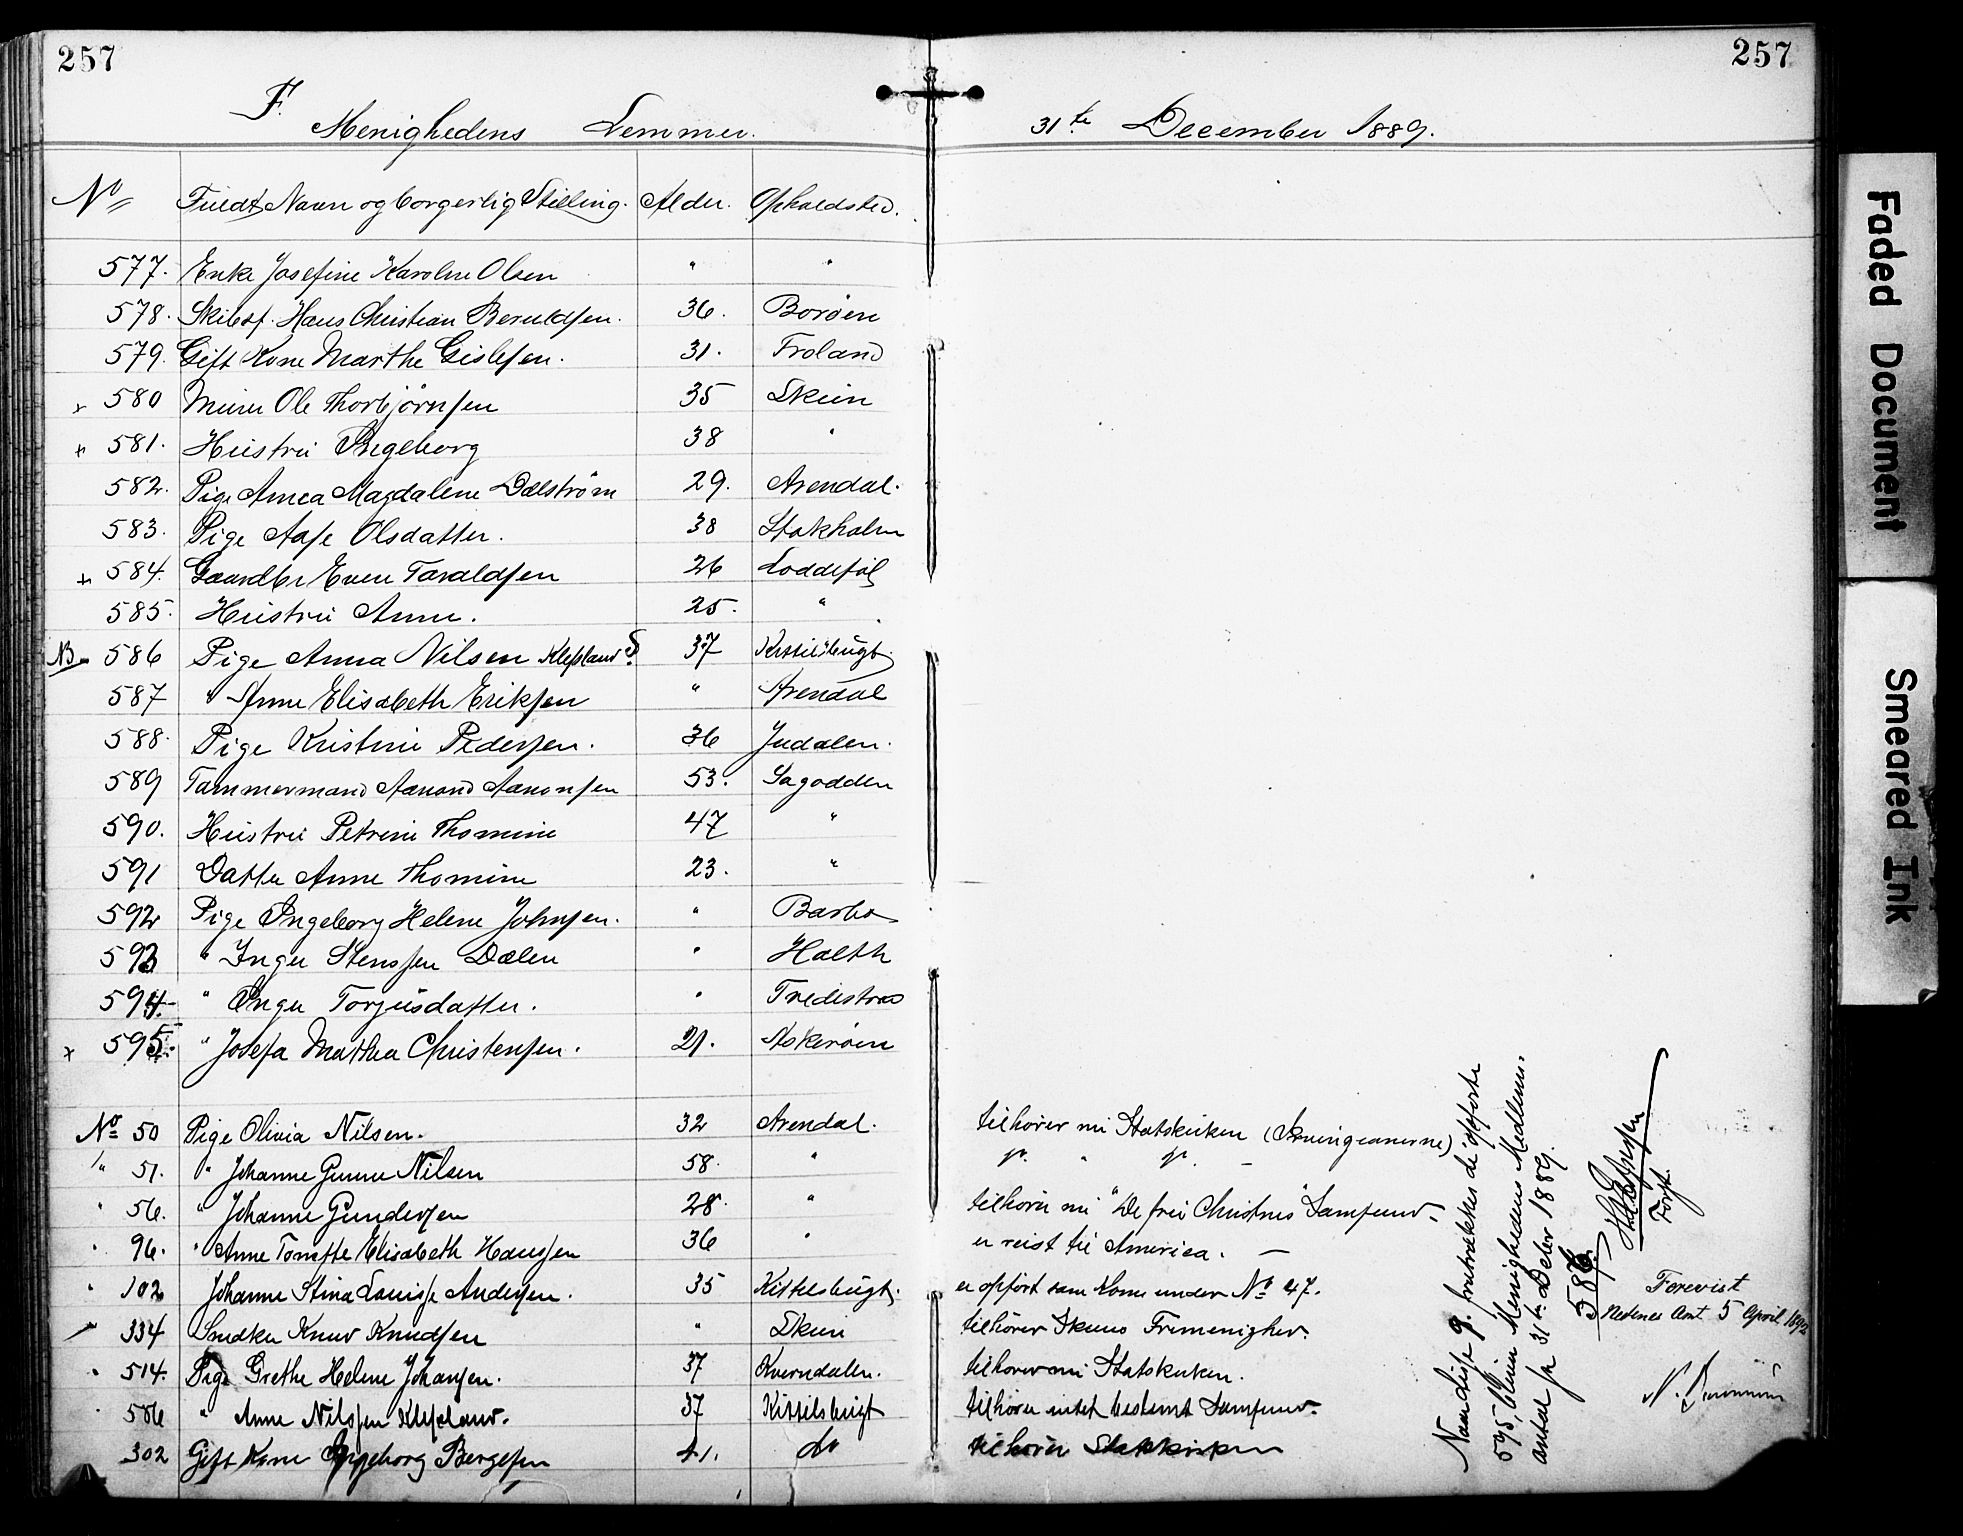 257
257
F.
Menighedens Lemmer.
31te December 1889.
No Fuldt Navn og borgerlig Stilling. Alder. Opholdsted.
577. Enke Josefine Karoline Olsen " "
578. Skibsf. Hans Christian Beruldsen. 36. Borøen
579. Gift Kone Marthe Gislesen. 31. Froland
x 580 Murer Ole Thorbjørnsen 35 Skien
x 581. Hustru Ingeborg 38 "
582. Pige Anna Magdalene Dalstrøm 29. Arendal.
583. Pige Aase Olsdatter. 38 Stokholm
x 584. Gaardbr Even Taraldsen 26 Loddesøl
585. Hustru Anne. 25. "
NB 586 Pige Anna Nilsen Klepland 37 Kittilsbugt
587 " Anne Elisabeth Eriksen " Arendal
588. Pige Kristine Pedersen. 36 Judalen.
589 Tømmermand Aanond Aanonsen 53. Sagodden
590. Hustru Petrine Thomine 47 "
591 Datter Anne Thomine 23. "
592 Pige Ingeborg Helene Johnsen. " Barbo
593 " Inger Stensen Dalen " Halth
594. " Inger Torjusdatter. " Tvedistran
x 595. " Josefa Mathea Christensen. 21. Askerøen
No 50 Pige Olivia Nilsen. 32 Arendal. tilhører nu Statskirken (Irvingeanerne)
" 51. " Johanne Gunne Nilsen 58. "
" 56. " Johanne Gundersen 28. " tilhører nu "De frie Christnes" Samfund.
" 96. " Anne Tomette Elisabeth Hansen 36 " er reist til America.
" 102 Johanne Stina Louise Andersen. 35 Kittelsbugt. er opført som Kone under No 47.
334 Snedker Knud Knudsen " Skien tilhører Skiens Frimenighed.
" 514. Pige Grethe Helene Johansen. 37 Kverndalen. tilhører nu Statskirken.
" 586 " Anne Nilsen Klepland. 37 Kittilsbugt tilhører intet bestemt Samfund.
302 Gift Kone Ingeborg Bergesen 41. do tilhører Statskirken
Naar disse 9. fratrækkes de opførte
595, bliver Menighedens Medlems.
antal pr 31te Decbr 1889.
586.
Forst.
Forevist
Nedenes Amt 5 April 1892
Faded Document
Smeared Ink